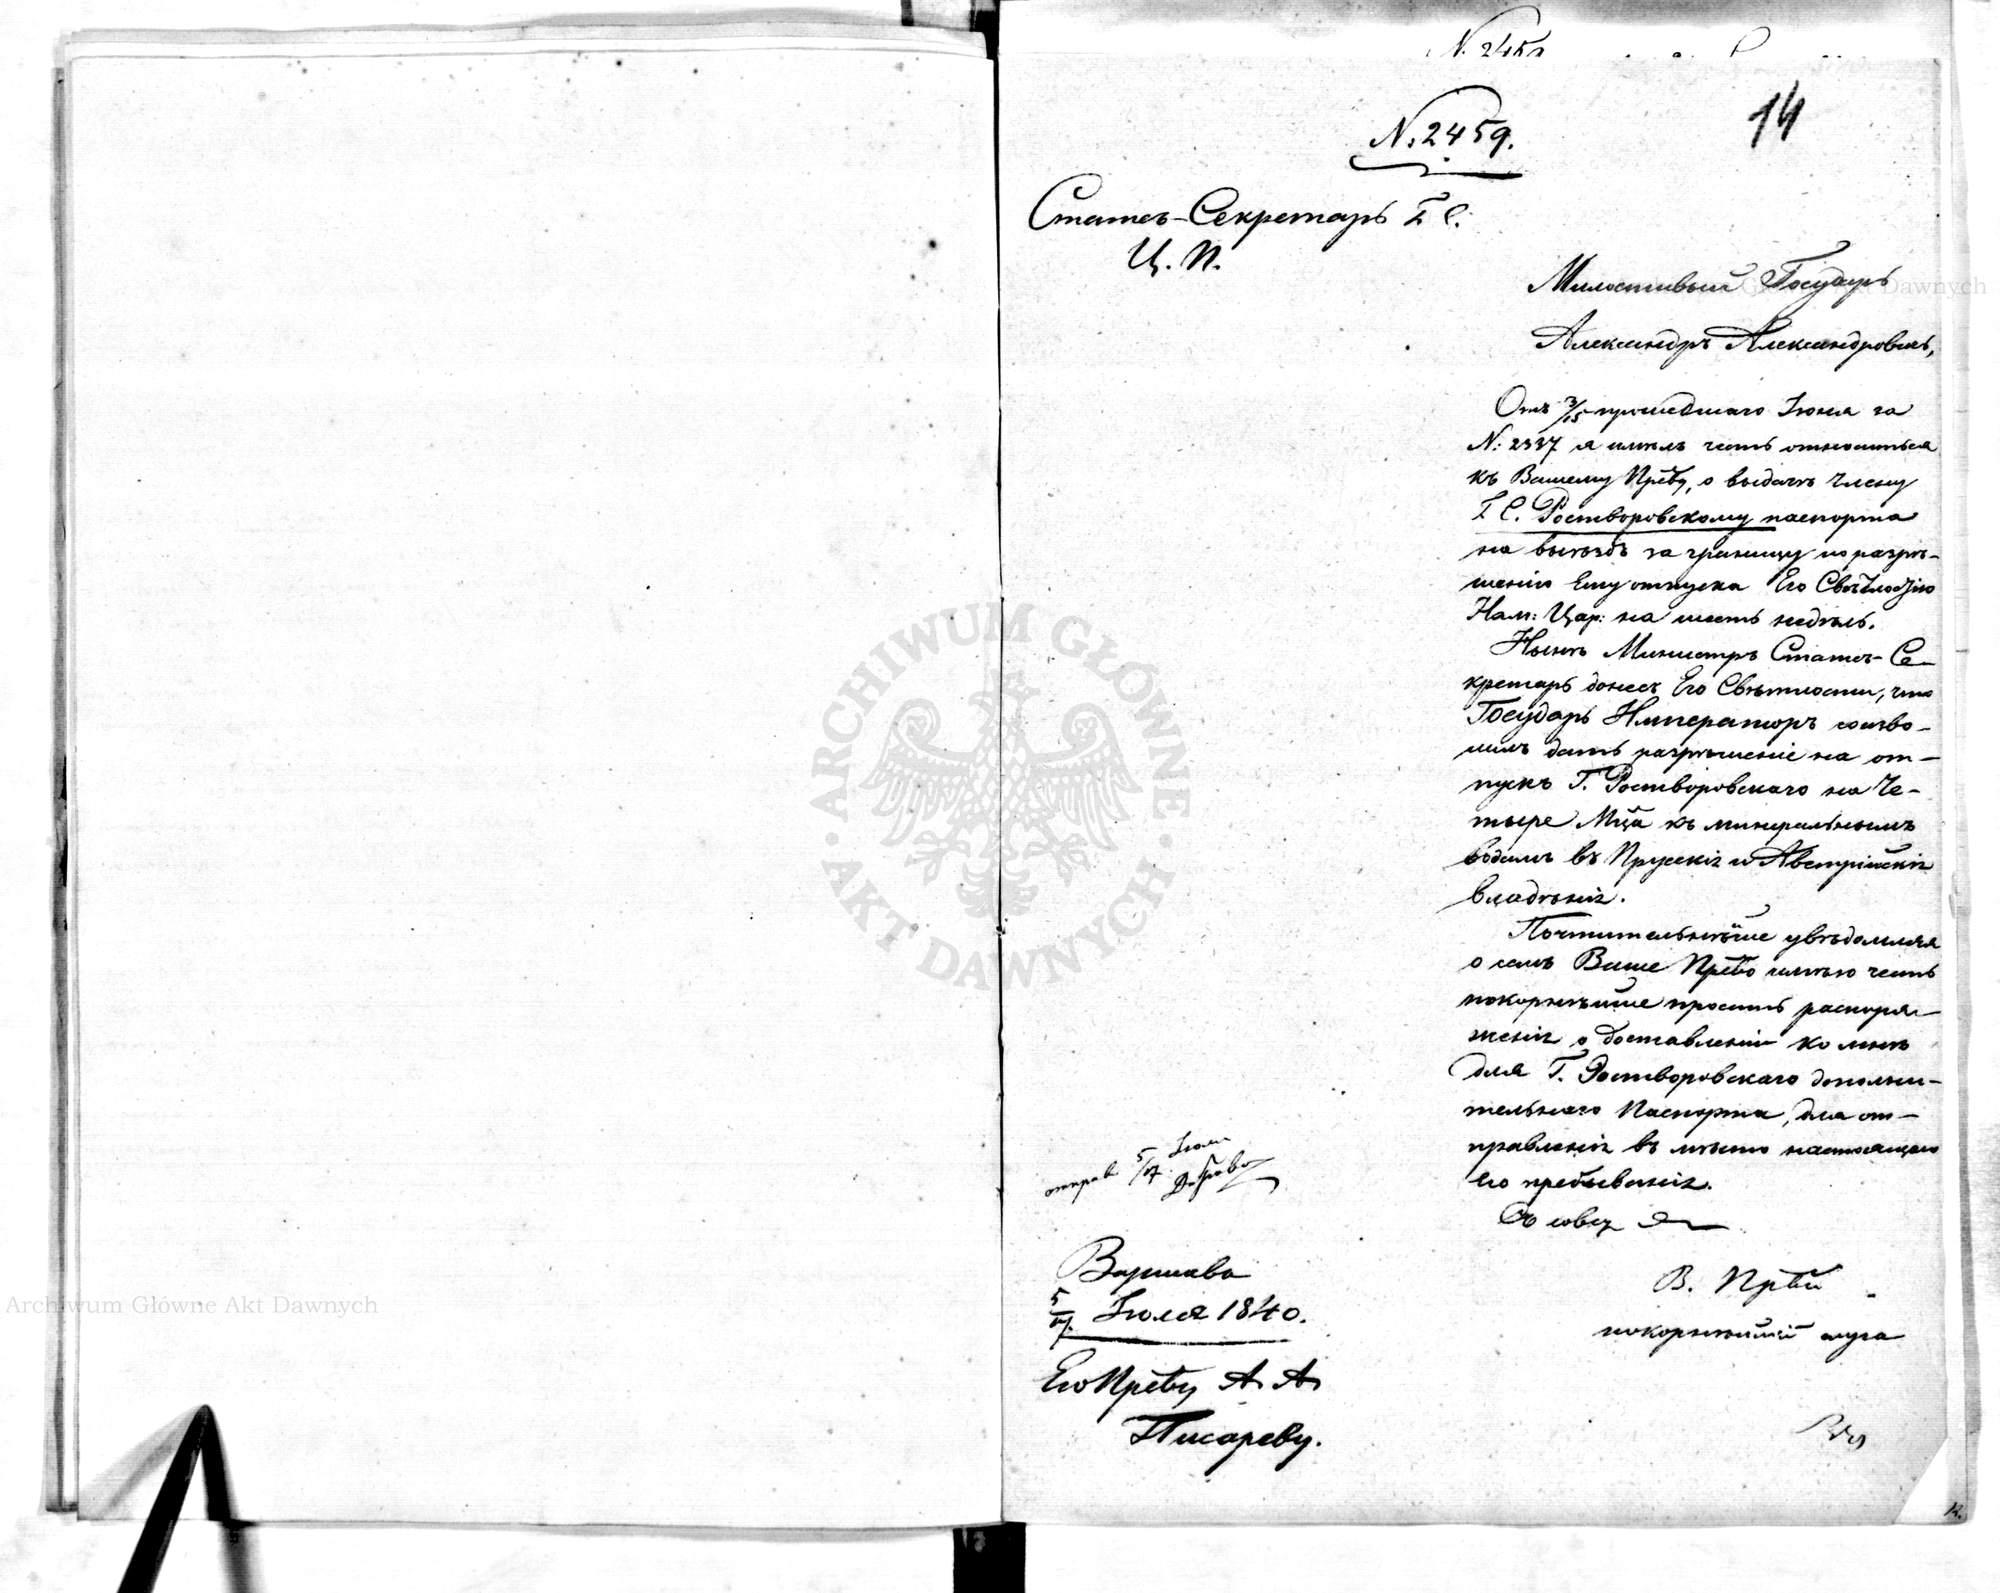 N. 2459.
14
Статсъ-Секретарь Г С.
Ц. П.
Милостивый Государь
Александръ Александровичь,
Отъ 3/15 прошедшаго Іюня за
N: 2337 я имѣлъ честь относиться
къ Вашему Прев̃у, о выдачѣ Члену
Г С. Ростворовскому паспорта
на выѣздъ за границу по разрѣ-
шеніи Ему отпуска Его Свѣтлостію
Нам: Цар: на шесть недѣль.
Нынѣ Министръ Статсъ-Се-
кретарь донесъ Его Свѣтлости, что
Государь Императоръ соизво-
лилъ дать разрѣшеніе на от-
пускъ Г. Ростворовскаго на Че-
тыре Мц̃а къ минеральнымъ
водамъ въ Прускія и Австрійскія
владѣнія.
Почтительнѣйше увѣдомляя
о семъ Ваше Прев̃о имѣю честь
покорнѣйше просить распоря-
женія о доставленіи ко мнѣ
для Г. Ростворовскаго дополни-
тельнаго Паспорта, для от-
правленія въ мѣсто настоящаго
его пребыванія.
Съ совер
В. Прев̃и
покорнѣйшій слуга
отправ 5/17 Іюля
Варшава
5/17. Іюля 1840.
Его Прев̃у А. А.
Писареву.
Archiwum Główne Akt Dawnych
ARCHIWUM GŁÓWNE
AKT DAWNYCH